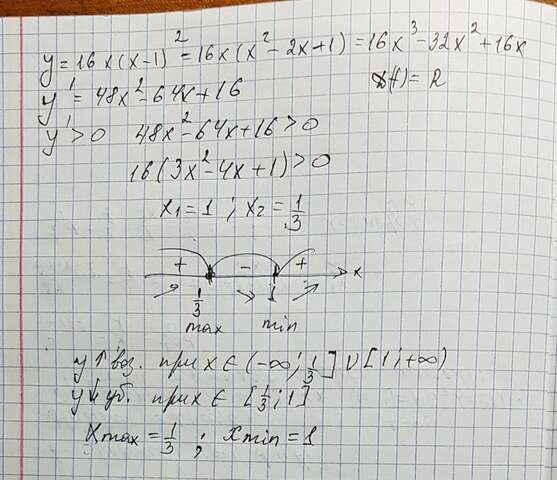 y = 16x(x-1)² = 16x(x² - 2x + 1) = 16x³ - 32x² + 16x
D(f) = R
y' = 48x² - 64x + 16
y' > 0 48x² - 64x + 16 > 0
16(3x² - 4x + 1) > 0
x₁ = 1 ; x₂ = 1/3
+ - + x
1/3 1
max min
y↑ воз. при x ∈ (-∞; 1/3] ∪ [1; +∞)
y↓ уб. при x ∈ [1/3; 1]
Xmax = 1/3 ; xmin = 1